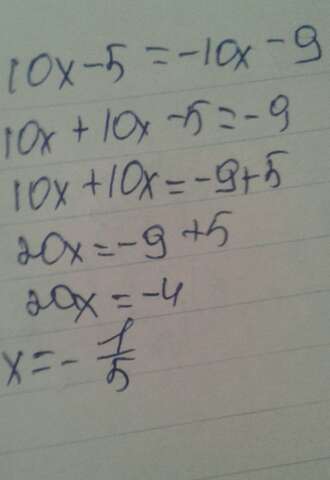 10x-5=-10x-9
10x+10x-5=-9
10x+10x=-9+5
20x=-9+5
20x=-4
x=-1/5